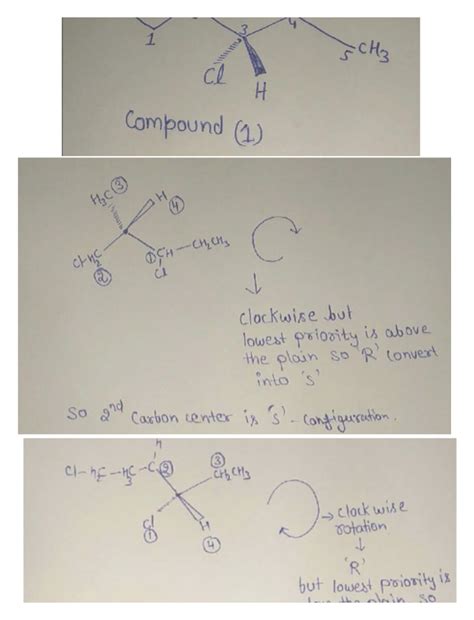 1
3
4
5 CH3
Cl
H
Compound (1)
H3C ③ H ④
ClH2C ② ① CH-CH2CH3
Cl
Clockwise but
lowest priority is above
the plain so 'R' convert
into 's'
so 2nd Carbon center is 's' - configuration.
H
③
CH2CH3
②
Cl
①
H
④
→ clockwise
rotation
↓
'R'
but lowest priority is